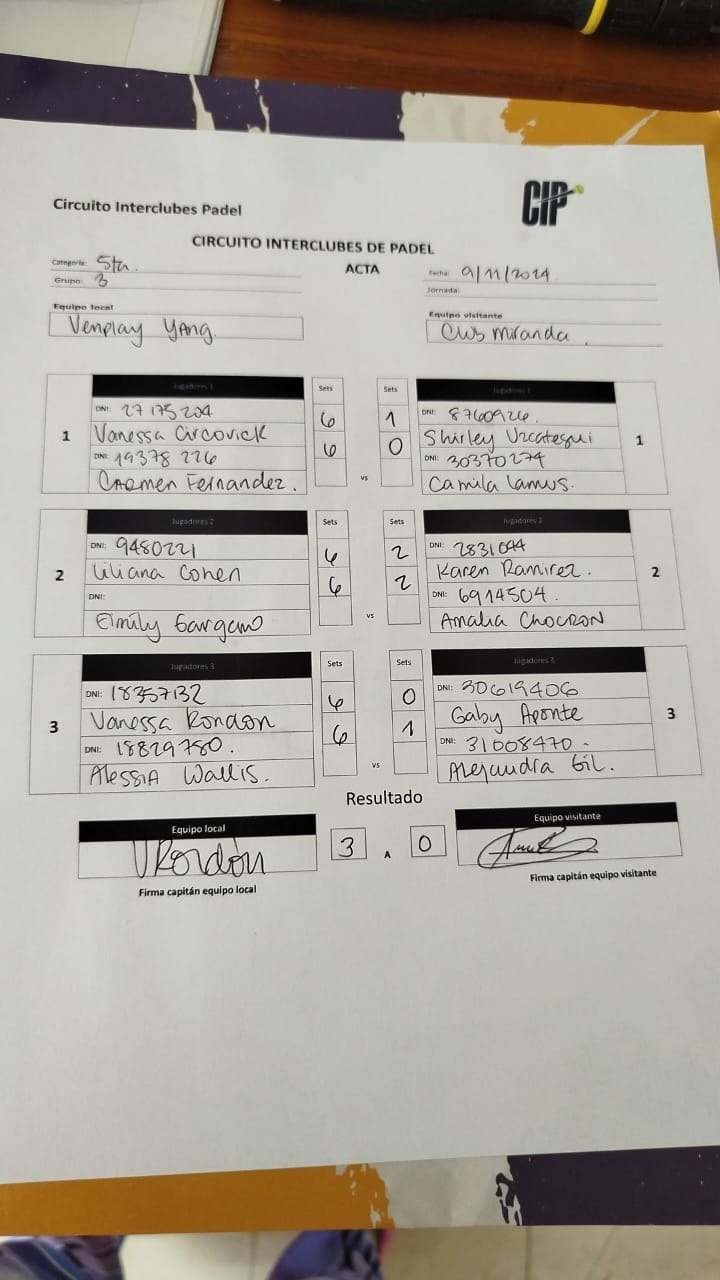 Circuito Interclubes Padel
CIP
CIRCUITO INTERCLUBES DE PADEL
ACTA
Categoría: 5ta.
Grupo: 3
Fecha: 9/11/2024
Jornada:
Equipo local
Venplay Yang.
Equipo visitante
Club Miranda.
Jugadores 1 Sets Sets Jugadores 1
1
DNI: 27175204 6 1 DNI: 8760926.
Vanessa Circovick Shirley Uzcategui
DNI: 19378226 6 0 DNI: 30370274
Carmen Fernandez. vs Camila Lamus.
1
Jugadores 2 Sets Sets Jugadores 2
2
DNI: 9480221 6 2 DNI: 2831044
Liliana Cohen Karen Ramirez.
DNI: 6 2 DNI: 6914504.
Eimily Gargano vs Amalia Chocron
2
Jugadores 3 Sets Sets Jugadores 3
3
DNI: 18357132 6 0 DNI: 30619406
Vanessa Rondon Gaby Aponte
DNI: 18829780. 6 1 DNI: 31008470.
Alessia Wallis. vs Alejandra Gil.
3
Resultado
Equipo local 3 A 0 Equipo visitante
VRondón
Firma capitán equipo local
Firma capitán equipo visitante